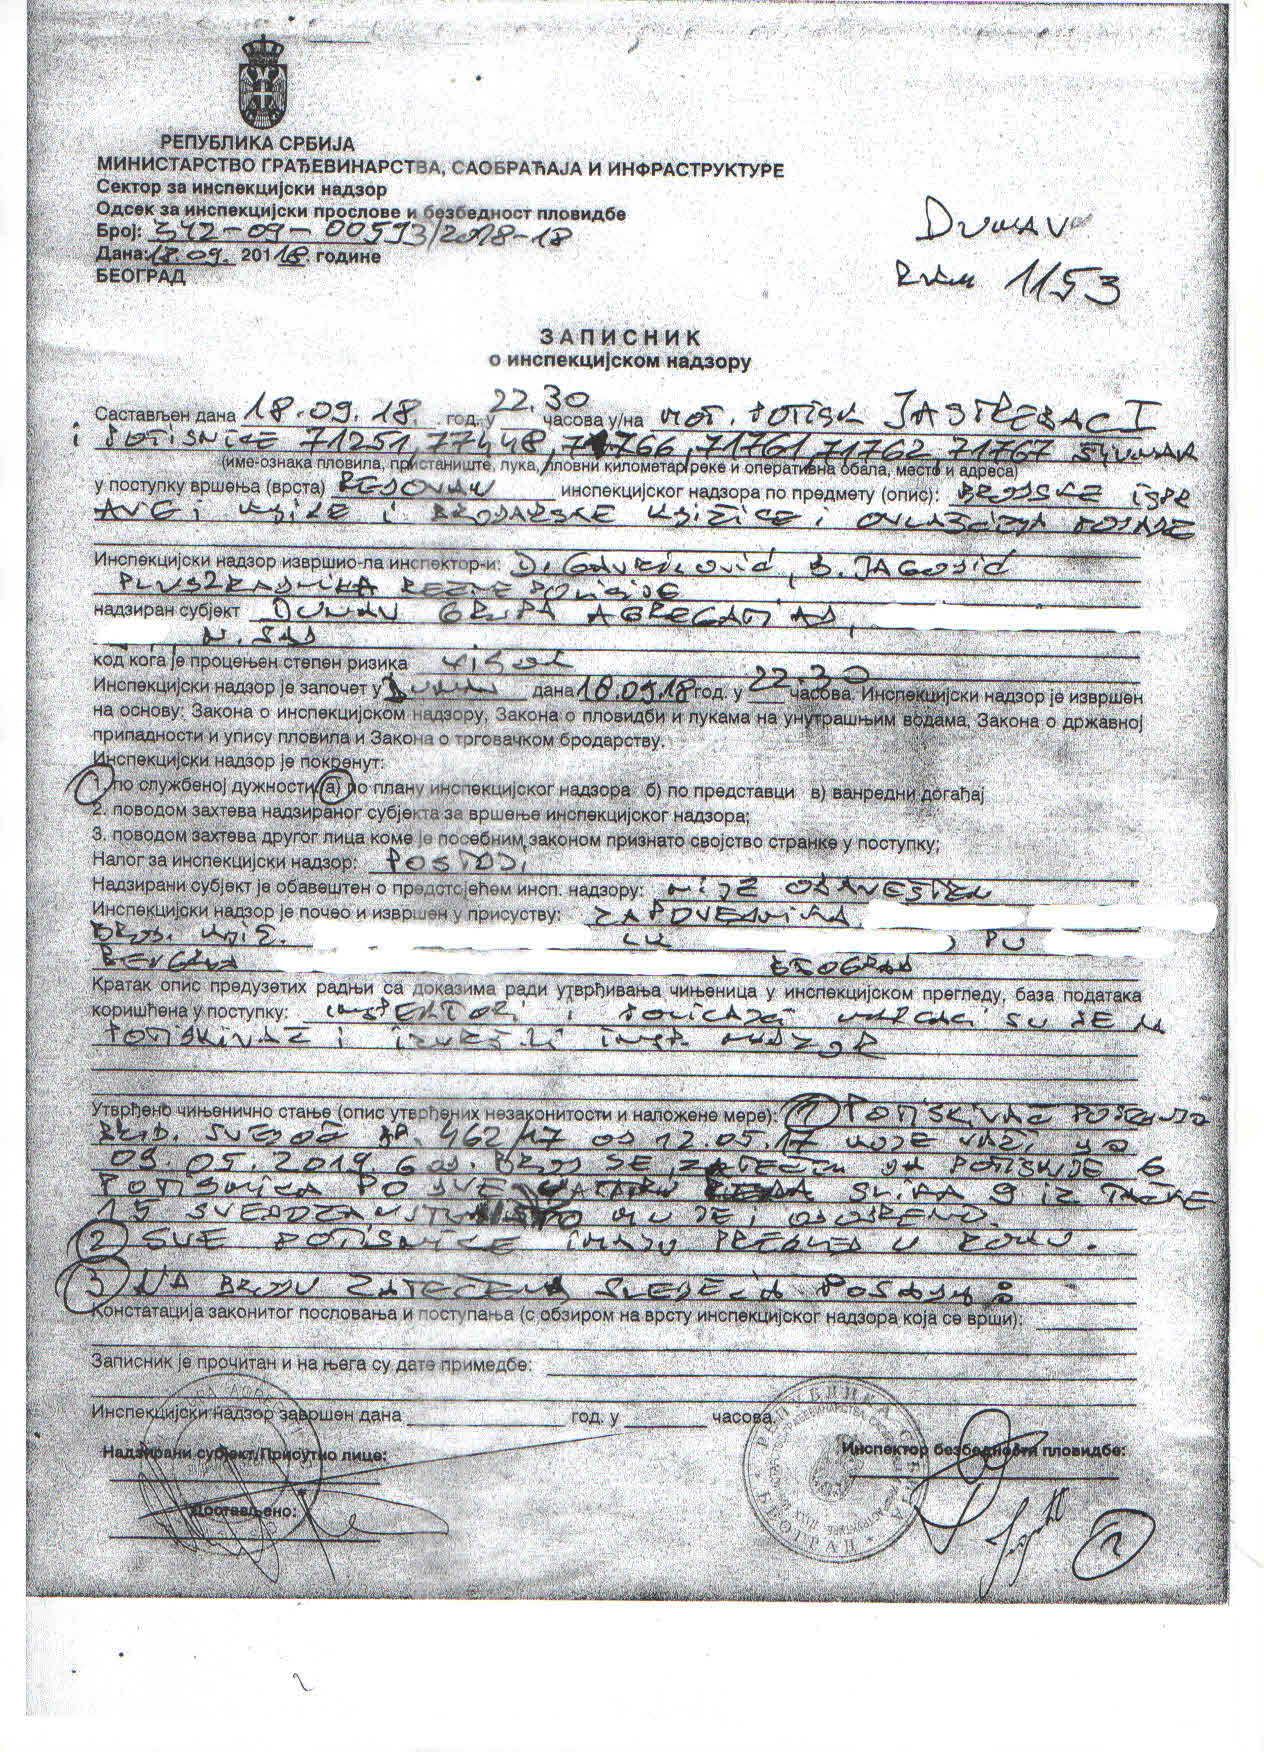 РЕПУБЛИКА СРБИЈА
МИНИСТАРСТВО ГРАЂЕВИНАРСТВА, САОБРАЋАЈА И ИНФРАСТРУКТУРЕ
Сектор за инспекцијски надзор
Одсек за инспекцијски прослове и безбедност пловидбе
Број: 342-09-00593/2018-18
Дана: 18.09. 201 18. године
БЕОГРАД
DUNAV
RKM 1153
ЗАПИСНИК
о инспекцијском надзору
Састављен дана 18.09.18. год. у 22.30 часова у/на MOT. POTISK JASTREBAC I
i POTISNICE 71251, 77448, 71766, 71761, 71762 71767
(име-ознака пловила, пристаниште, лука, пловни километар реке и оперативна обала, место и адреса)
у поступку вршења (врста) REDOVAN инспекцијског надзора по предмету (опис): BRODSKE ISPR
AVE i KNJIGE i BRODARSKE KNJIŽICE i POSADE
Инспекцијски надзор извршио-ла инспектор-и: D. GAVRILOVIĆ, B. JAGODIĆ
PLUS REČNE POLICIJE
надзиран субјект DUNAV GRUPA AGREGATI AD,
N. SAD
код кога је процењен степен ризика VISOK
Инспекцијски надзор је започет у дана 18.09.18 год. у 22.30 часова. Инспекцијски надзор је извршен
на основу: Закона о инспекцијском надзору, Закона о пловидби и лукама на унутрашњим водама, Закона о државној
припадности и упису пловила и Закона о трговачком бродарству.
Инспекцијски надзор је покренут:
1. по службеној дужности: а) по плану инспекцијског надзора б) по представци в) ванредни догађај
2. поводом захтева надзираног субјекта за вршење инспекцијског надзора;
3. поводом захтева другог лица коме је посебним законом признато својство странке у поступку;
Налог за инспекцијски надзор: POSTOJI
Надзирани субјект је обавештен о предстојећем инсп. надзору: NIJE OBAVEŠTEN
Инспекцијски надзор је почео и извршен у присуству: ZAPOVEDNIKA
BROD. KNJIŽ. LK PU
BEOGRAD
Кратак опис предузетих радњи са доказима ради утврђивања чињеница у инспекцијском прегледу, база података
коришћена у поступку: INSPEKTORI i POLICAJCI UKRCALI SU SE NA
POTISKIVAČ i IZVRŠILI INSP. NADZOR
Утврђено чињенично стање (опис утврђених незаконитости и наложене мере): 1 POTISKIVAČ POSEDUJE
BROD. SVEDOČ. BR. 462/17 OD 12.05.17 KOJE VAŽI DO
09.05.2019. GOD. BROD SE ZATEČEN DA POTISKUJE 6
POTISNICA PO SLIKA 9 IZ TAČKE
15 SVEDOČANSTVA ŠTO MU JE i ODOBRENO.
2 SVE POTISNICE IMAJU PREGLED U ROKU.
3 NA BRODU ZATEČENA SLEDEĆA POSADA:
Констатација законитог пословања и поступања (с обзиром на врсту инспекцијског надзора која се врши):
Записник је прочитан и на њега су дате примедбе:
Инспекцијски надзор завршен дана год. у часова.
Надзирани субјект/Присутно лице:
Инспектор безбедности пловидбе:
Достављено: